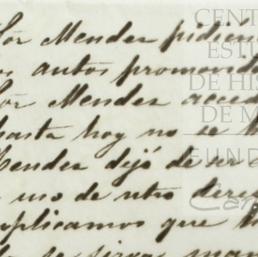 Sor Mendez pidien
os autos promovido
Sor Mendez acced
hasta hoy no se h
Mendez dejó de ser
uso de ntro dere
uplicamos que
se sirva man
CENT
EST
DE HIS
DE M
FUND
Car